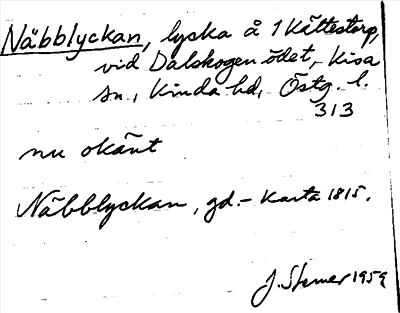 Näbblyckan, lycka å 1 Kättestorp,
vid Dalskogen ödet, Kisa
sn., Kinda hd, Östg. l.
313
nu okänt
Näbblyckan, gd. - Karta 1815.
J. Stemer 1959